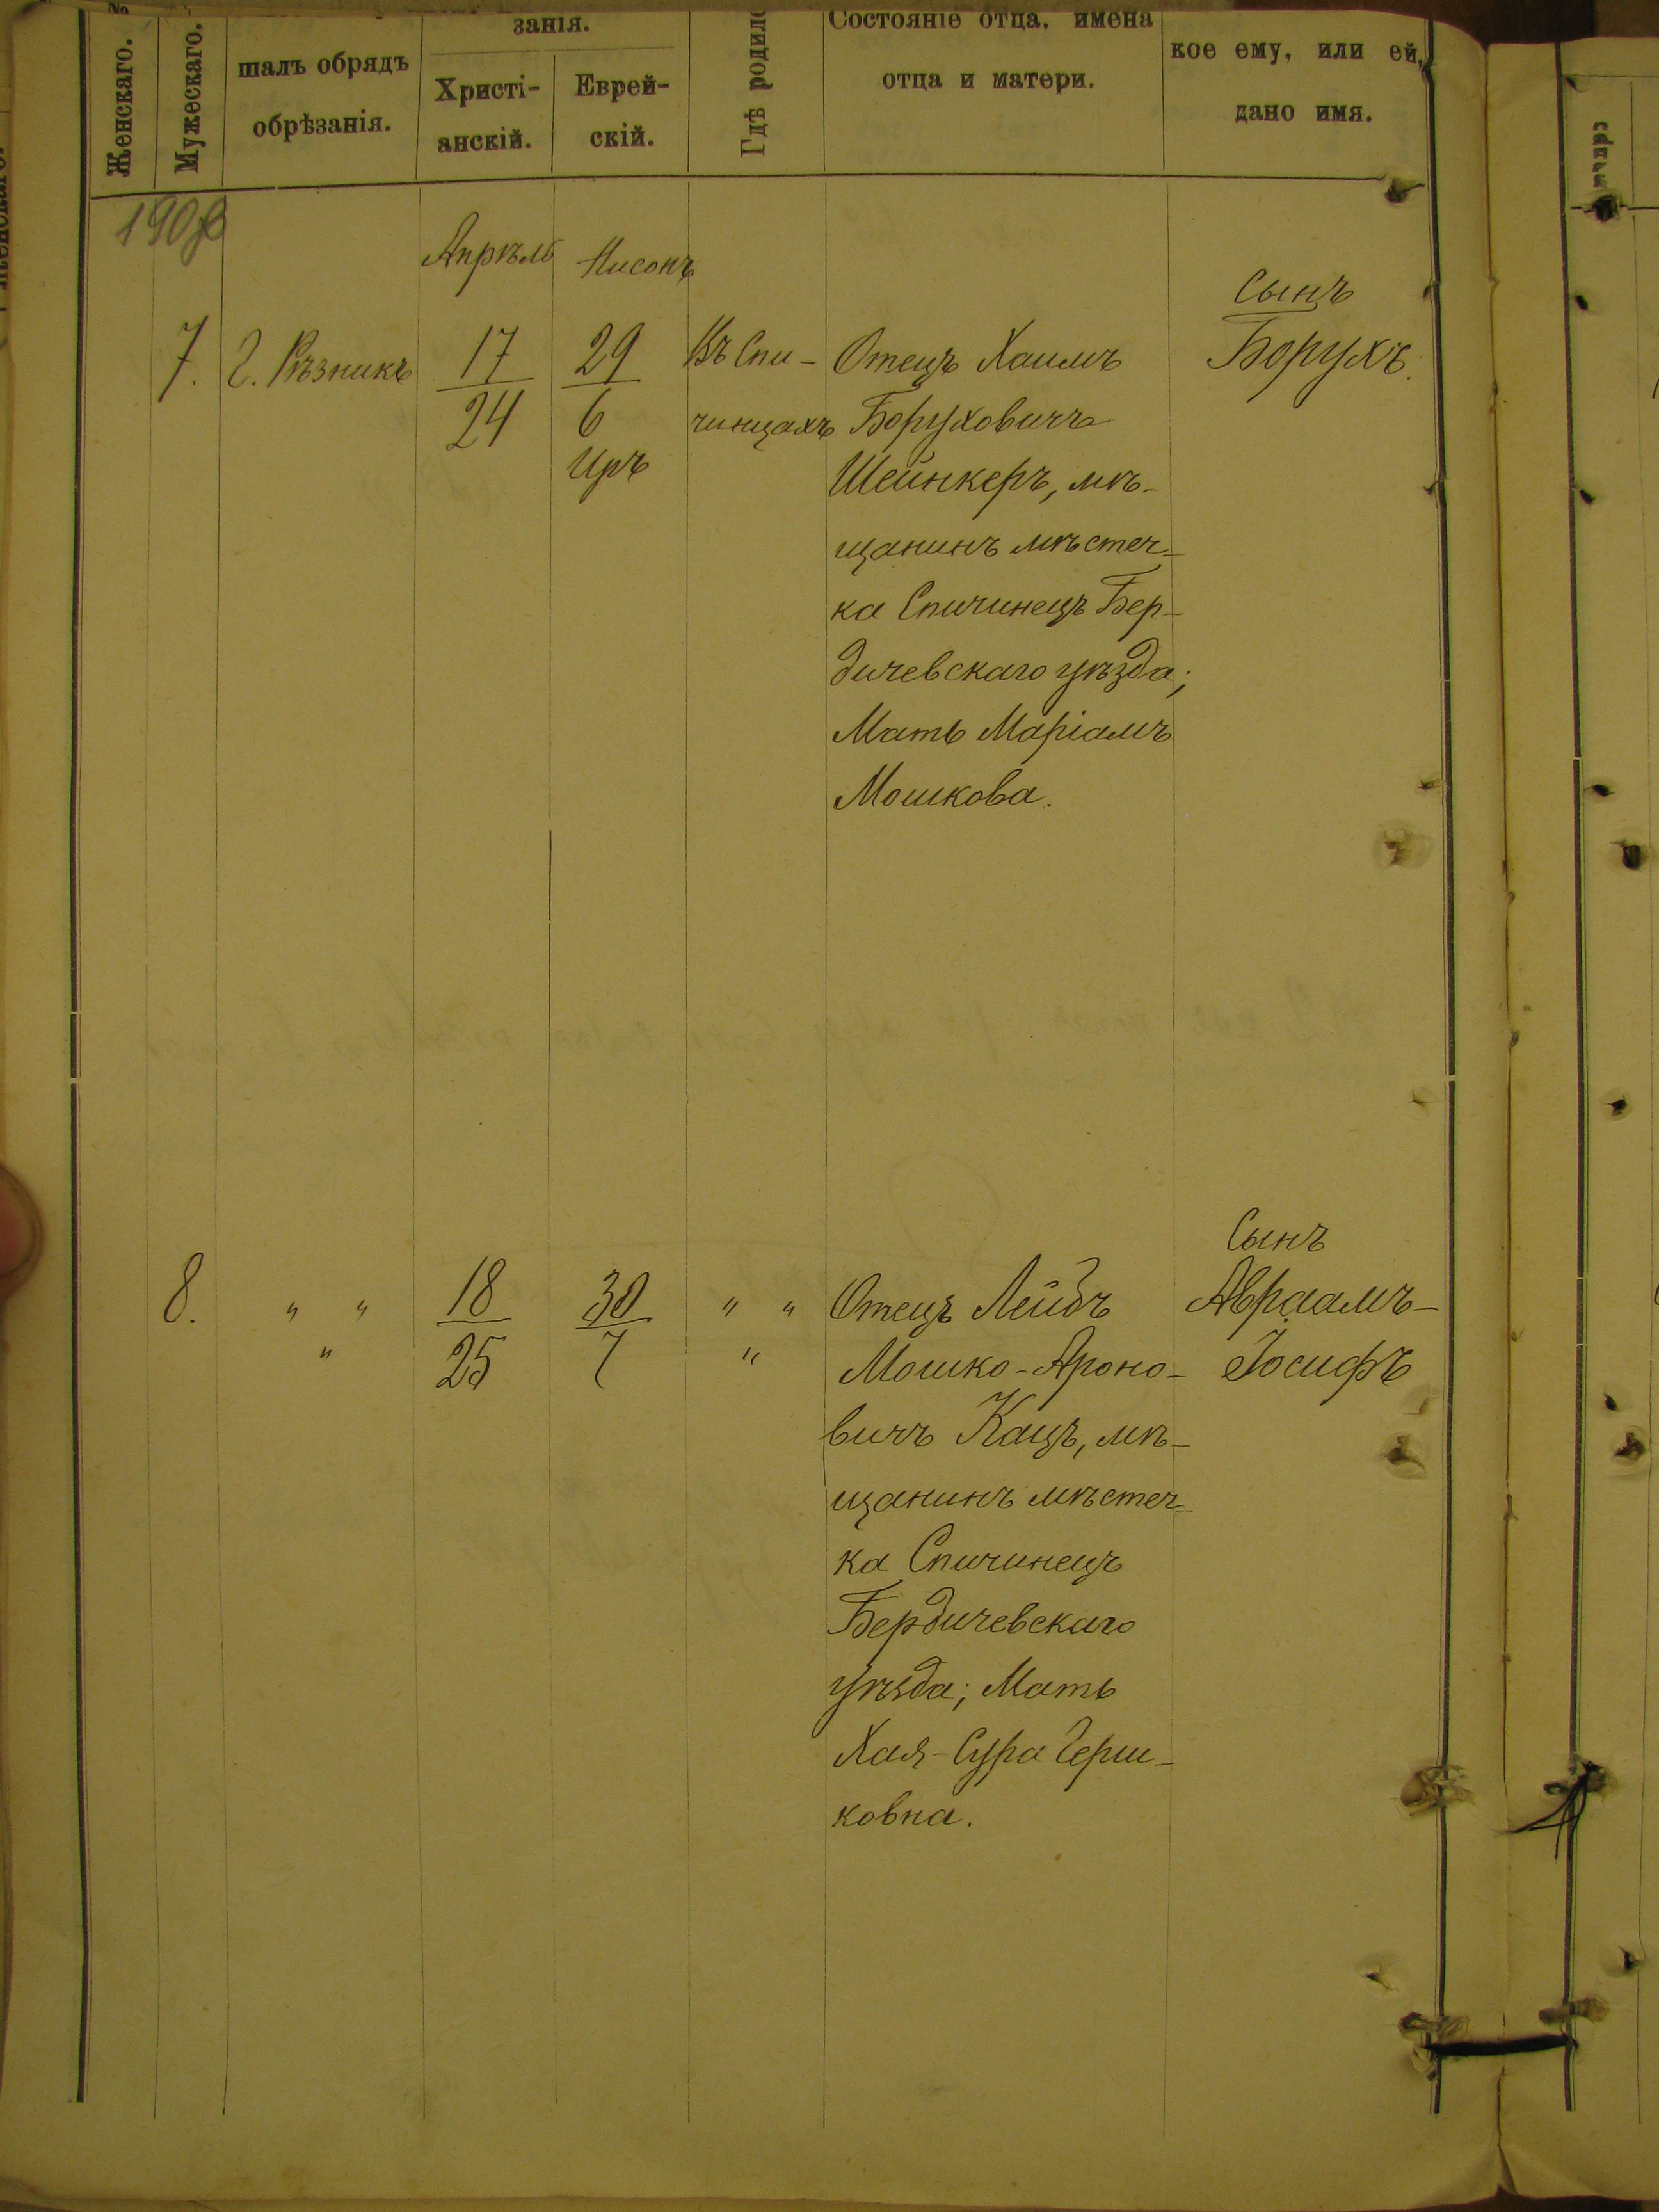 №
Женскаго.
Мужескаго.
шалъ обрядъ
обрѣзанія.
занія.
Христі-
анскій.
Еврей-
скій.
Гдѣ родилс
Состояніе отца, имена
отца и матери.
кое ему, или ей,
дано имя.
Апрѣль Нисонъ
7. Г. Рѣзникъ
17
24
29
6
Иръ
Въ Спи-
чинцахъ
Отецъ Хаимъ
Боруховичъ
Шейнкеръ, мѣ-
щанинъ мѣстеч-
ка Спичинецъ Бер-
дичевскаго уѣзда;
Мать Маріамъ
Мошкова.
Сынъ
Борухъ.
8. " "
"
18
25
30
7
" "
"
Отецъ Лейбъ
Мошко-Ароно-
вичъ Кацъ, мѣ-
щанинъ мѣстеч-
ка Спичинецъ
Бердичевскаго
уѣзда; Мать
Хая-Сура Герш-
ковна.
Сынъ
Авраамъ-
Іосифъ